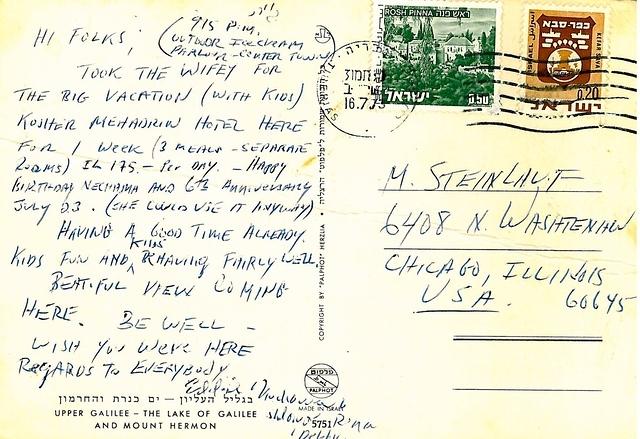 HI FOLKS,
9/5 P.M.
(OUTDOOR ICECREAM
PARLOR - CENTER TOWN)
TOOK THE WIFEY FOR
THE BIG VACATION (WITH KIDS)
KOSHER MEHADRIN HOTEL HERE
FOR 1 WEEK (3 MEALS - SEPARATE
ROOMS) IL 175.- PER DAY. - HAPPY
BIRTHDAY NECHAMA AND 6TH ANNIVERSARY
JULY 23. (SHE COULD USE IT ANYWAY)
HAVING A GOOD TIME ALREADY.
KIDS FUN AND KIDS BEHAVING FAIRLY WELL
BEATIFUL VIEW COMING
HERE. BE WELL -
WISH YOU WERE HERE
REGARDS TO EVERYBODY.
Rina
בגליל העליון – ים כנרת והחרמון
UPPER GALILEE – THE LAKE OF GALILEE
AND MOUNT HERMON
COPYRIGHT BY "PALPHOT" HERZLIA
פלפוט
PALPHOT
MADE IN ISRAEL
5751
16.7.75
ROSH PINNA ראש פנה
ישראל
0.50
כפר-סבא
KEFAR SAVA
ISRAEL
0.20
ישראל
M. STEINLAUF
6408 N. WASHTENAW
CHICAGO, ILLINOIS
USA. 60645